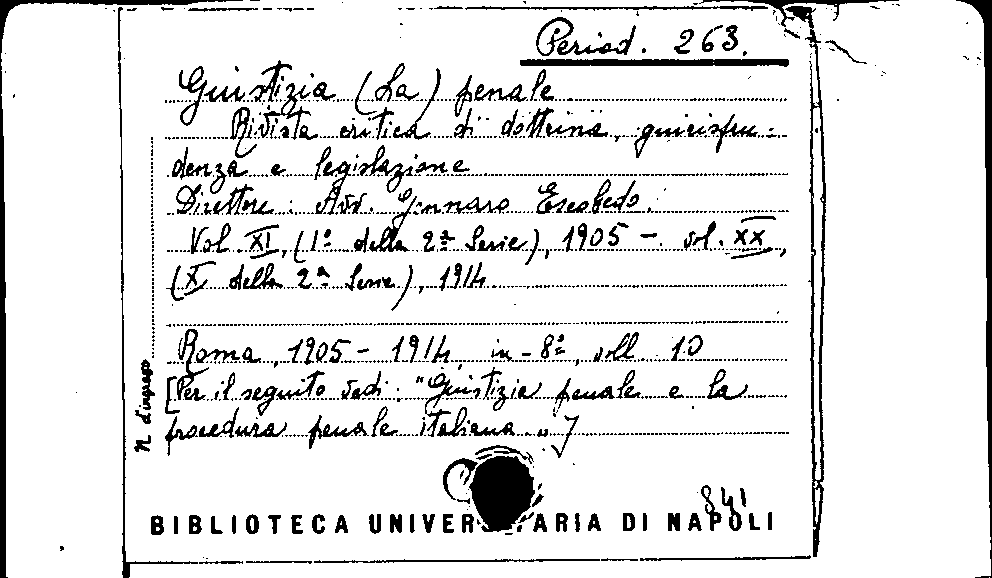 Period. 263.
Giustizia (La) penale
Rivista critica di dottrina, giurispru-
denza e legislazione
Direttore: Avv. Gennaro Escobedo.
Vol. XI, (1º della 2ª Serie), 1905 - vol. XX,
(X della 2ª Serie), 1914.
Roma, 1905 - 1914, in-8º, voll. 10
[Per il seguito vedi: "Giustizia penale e la
procedura penale italiana."]
N. d'ingresso
841
BIBLIOTECA UNIVERSITARIA DI NAPOLI